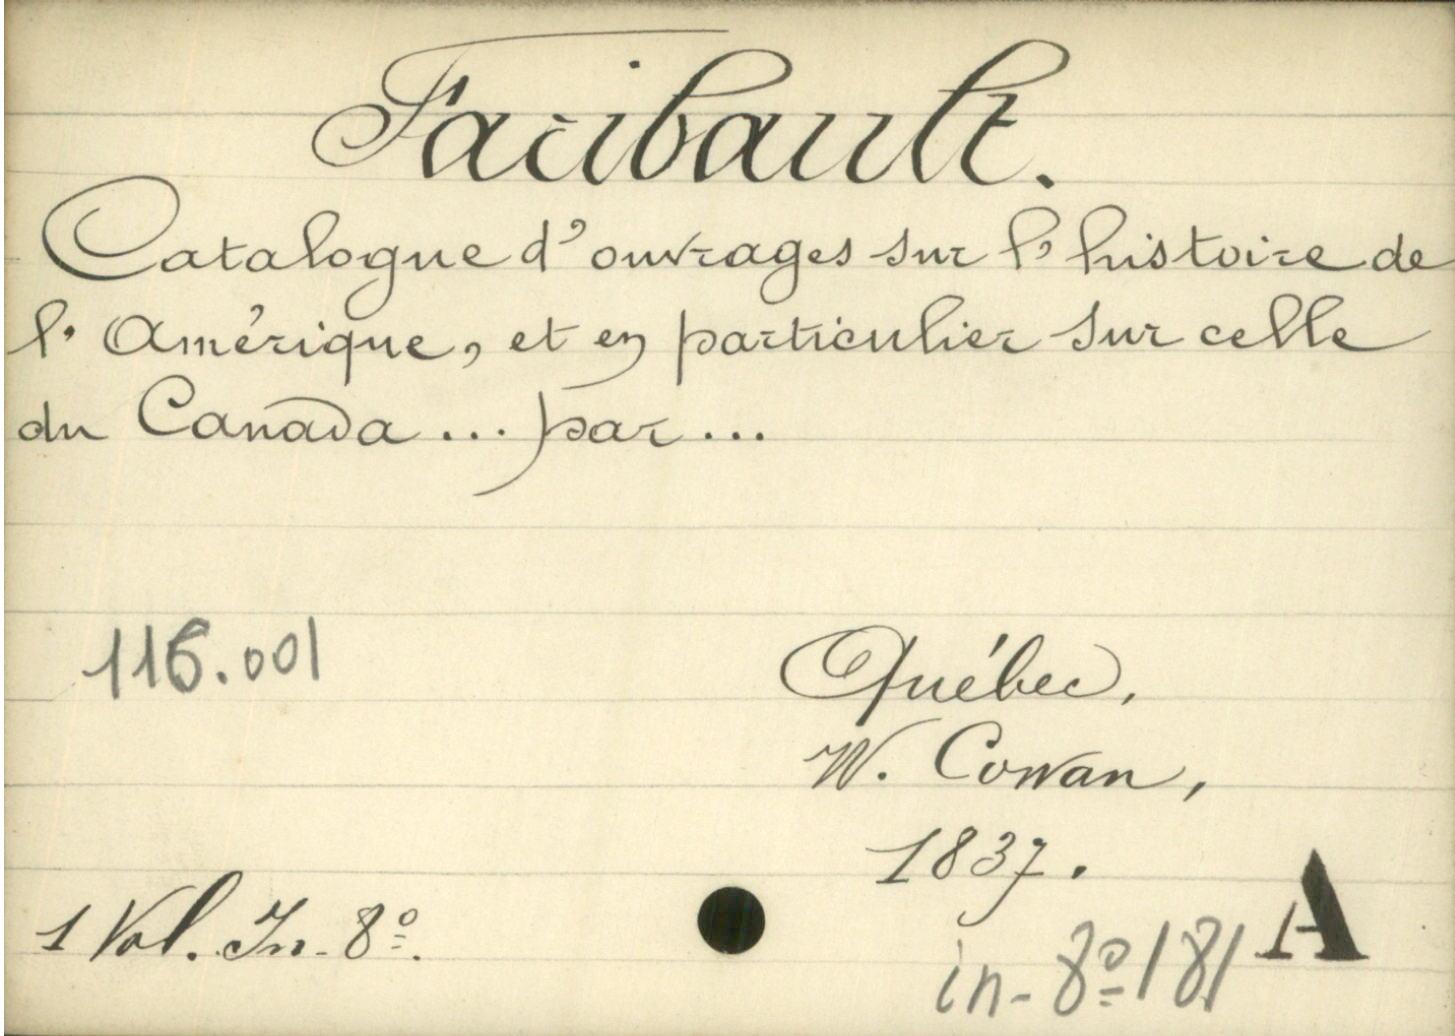 Faribault.
Catalogue d'ouvrages sur l'histoire de
l'Amérique, et en particulier sur celle
du Canada... par...
116.001
Québec,
W. Cowan,
1837.
1 Vol. In-8º.
in-8º 181 A